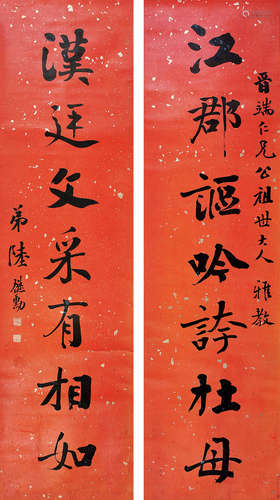 晋端仁兄公祖世大人 雅教
江郡謳吟誇杜母
漢廷文采有相如
弟陸繼勳